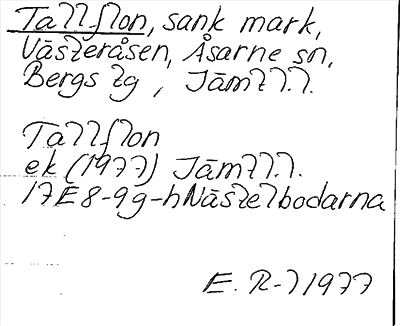 Tallflon, sank mark,
Västeråsen, Åsarne sn,
Bergs tg, Jämtl.l.
Tallflon
ek (1977) Jämtl.l.
17E8-9g-h Nästelbodarna
E. R-l 1977